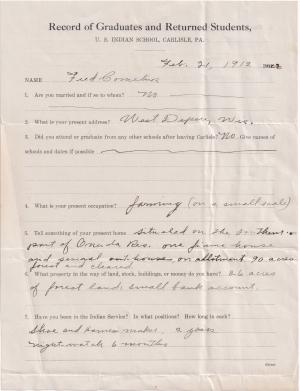 Record of Graduates and Returned Students,
U. S. INDIAN SCHOOL, CARLISLE, PA.
Feb. 21, 1912
NAME Fred Cornelius
1. Are you married and if so to whom? No
2. What is your present address? West Depere, Wis.
3. Did you attend or graduate from any other schools after leaving Carlisle? No Give names of
schools and dates if possible
4. What is your present occupation? farming (on a small scale)
5. Tell something of your present home situated on the Southern
part of Oneida Res. one frame house
and several out houses on allotment 90 acres
forest and cleared.
6. What property in the way of land, stock, buildings, or money do you have? 26 acres
of forest land: small bank account.
7. Have you been in the Indian Service? In what positions? How long in each?
Shoe and harness maker. 2 years
nightwatch 6 months